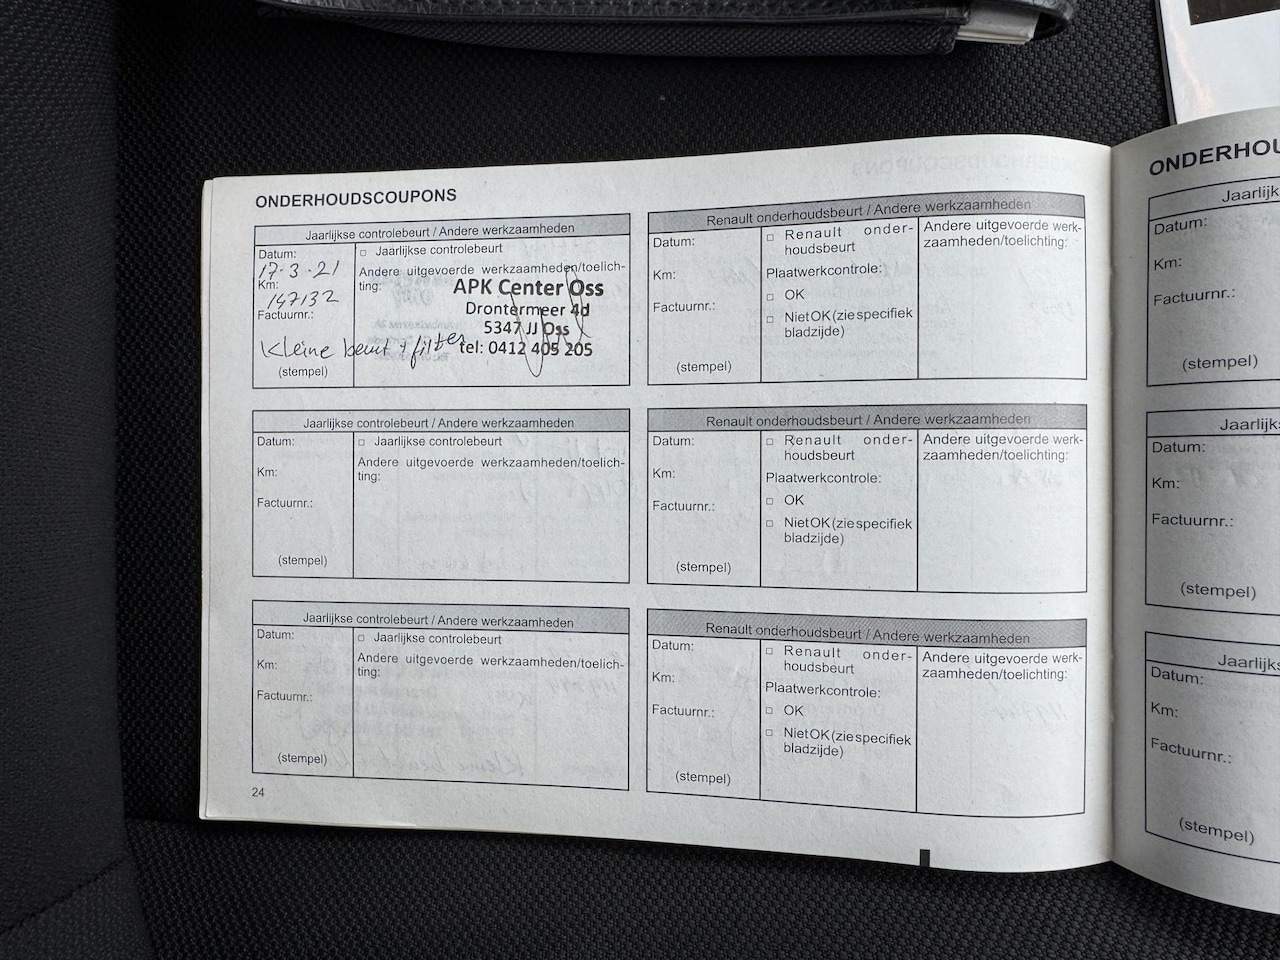 ONDERHOUDSCOUPONS
Jaarlijkse controlebeurt / Andere werkzaamheden
Datum:
17-3-21
Km:
147132
Factuurnr.:
Kleine beurt + filter
(stempel)
□ Jaarlijkse controlebeurt
Andere uitgevoerde werkzaamheden/toelich-
ting:
APK Center Oss
Drontermeer 4d
5347 JJ Oss
tel: 0412 405 205
Renault onderhoudsbeurt / Andere werkzaamheden
Datum:
Km:
Factuurnr.:
(stempel)
□ Renault onder-
houdsbeurt
Plaatwerkcontrole:
□ OK
□ Niet OK (zie specifiek
bladzijde)
Andere uitgevoerde werk-
zaamheden/toelichting:
Jaarlijkse controlebeurt / Andere werkzaamheden
Datum:
Km:
Factuurnr.:
(stempel)
□ Jaarlijkse controlebeurt
Andere uitgevoerde werkzaamheden/toelich-
ting:
Renault onderhoudsbeurt / Andere werkzaamheden
Datum:
Km:
Factuurnr.:
(stempel)
□ Renault onder-
houdsbeurt
Plaatwerkcontrole:
□ OK
□ Niet OK (zie specifiek
bladzijde)
Andere uitgevoerde werk-
zaamheden/toelichting:
Jaarlijkse controlebeurt / Andere werkzaamheden
Datum:
Km:
Factuurnr.:
(stempel)
□ Jaarlijkse controlebeurt
Andere uitgevoerde werkzaamheden/toelich-
ting:
Renault onderhoudsbeurt / Andere werkzaamheden
Datum:
Km:
Factuurnr.:
(stempel)
□ Renault onder-
houdsbeurt
Plaatwerkcontrole:
□ OK
□ Niet OK (zie specifiek
bladzijde)
Andere uitgevoerde werk-
zaamheden/toelichting:
24
ONDERHOU
Jaarlijk
Datum:
Km:
Factuurnr.:
(stempel)
Jaarlijks
Datum:
Km:
Factuurnr.:
(stempel)
Jaarlijks
Datum:
Km:
Factuurnr.:
(stempel)